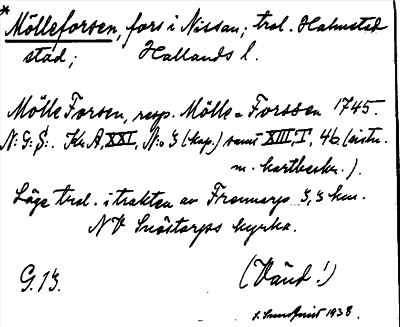 * Mölleforsen, fors i Nissan; trol. Halmstad
stad; Hallands l.
Mölle Forsen, resp. Mölle=Forssen 1745.
N:G:S:. Kr. A, XXI, N:o 3 (kop.) samt XIII, I, 46 (
m. kartbeskr.).
Läge trol. i trakten av Frennarp 3,3 km.
NV Snöstorps kyrka.
G. 13. (Vänd!)
S. Sundqvist 1938.